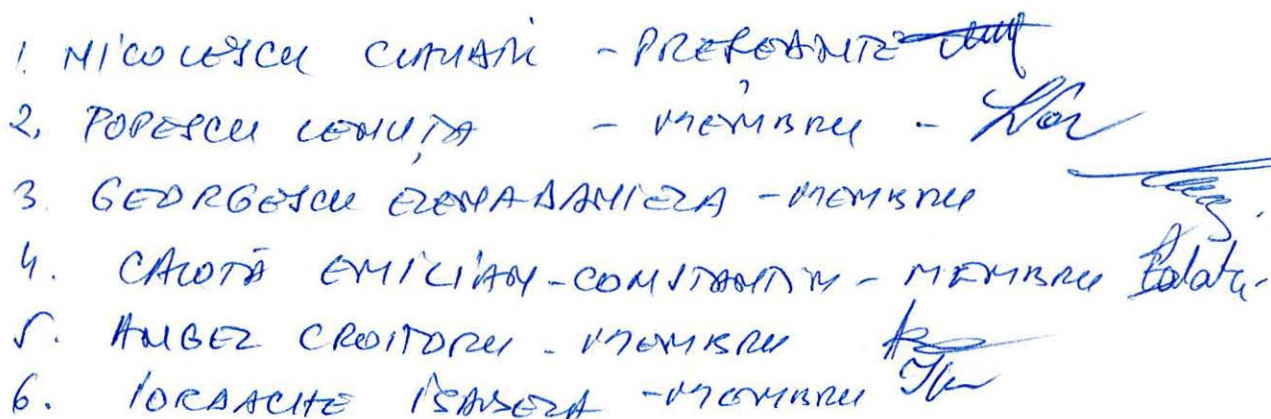 1. NICOLESCU - PREȘEDINTE
2. POPESCU LENUȚA - MEMBRU -
3. GEORGESCU ELENA-DANIELA - MEMBRU
4. CALOTĂ EMILIAN-CONSTANTIN - MEMBRU
5. ANGEL CROITORU - MEMBRU
6. IORDACHE ISABELA - MEMBRU